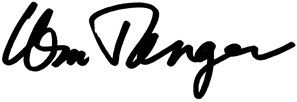 Wm Danger